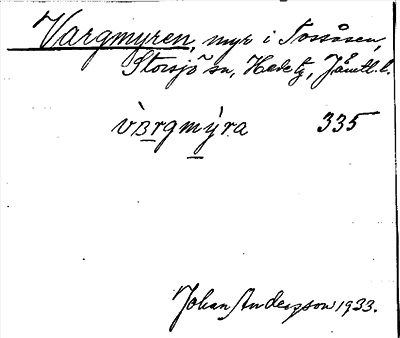 Vargmyren, myr i Tossåsen,
Storsjö sn, Hede tg, Jämtl. l.
vàrgmỳra 335
Johan Andersson 1933.